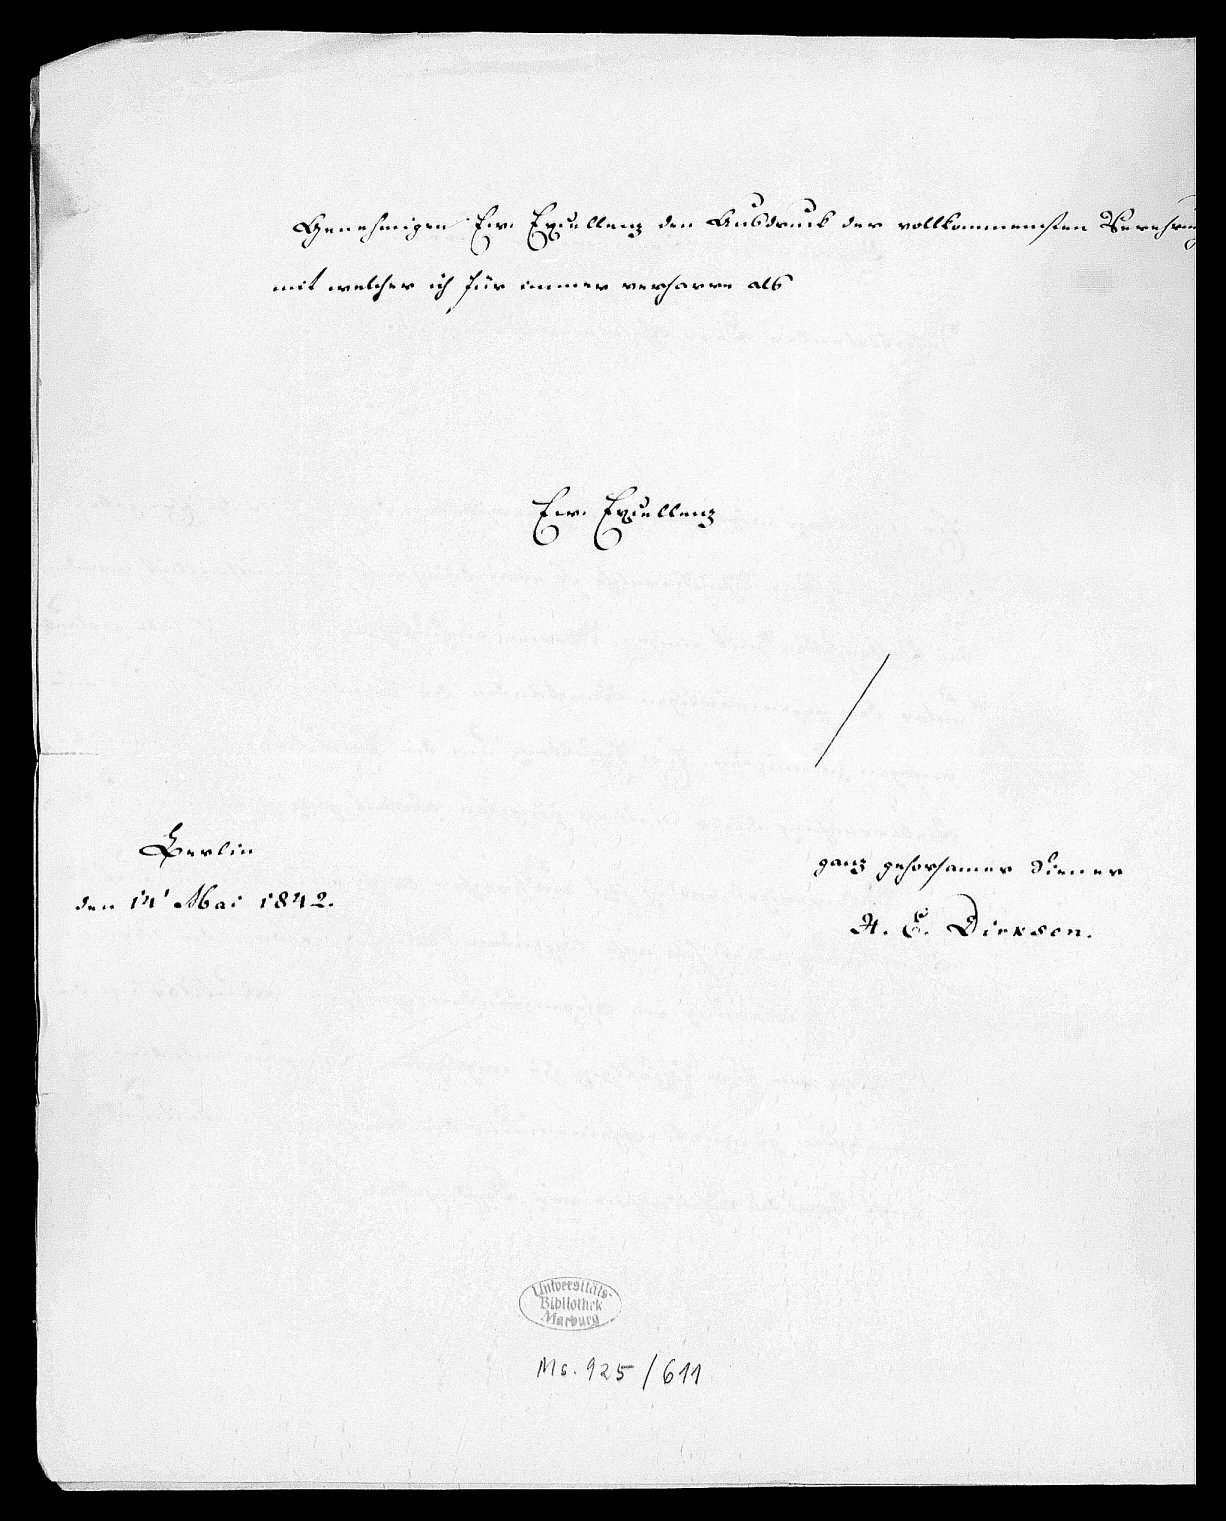 Genehmigen Ew. Excellenz den Ausdruck der vollkommensten Verehrung
mit welcher ich für immer verharre als
Ew. Excellenz
Berlin
den 14' Mai 1842.
ganz gehorsamer Diener
H. E. Dirksen.
Universitäts-
Bibliothek
Marburg
Ms. 925/611